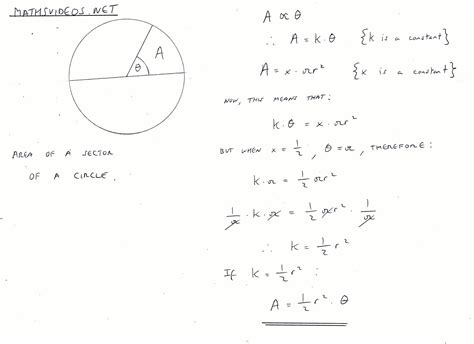 MATHSVIDEOS.NET
A
θ
AREA OF A SECTOR
OF A CIRCLE.
A ∝ θ
∴ A = k·θ {k is a constant}
A = x·πr² {x is a constant}
NOW, THIS MEANS THAT:
k·θ = x·πr²
BUT WHEN x = 1/2, θ = π, THEREFORE:
k·π = 1/2 πr²
1/π · k·π = 1/2 πr² · 1/π
∴ k = 1/2 r²
If k = 1/2 r² :
A = 1/2 r²·θ